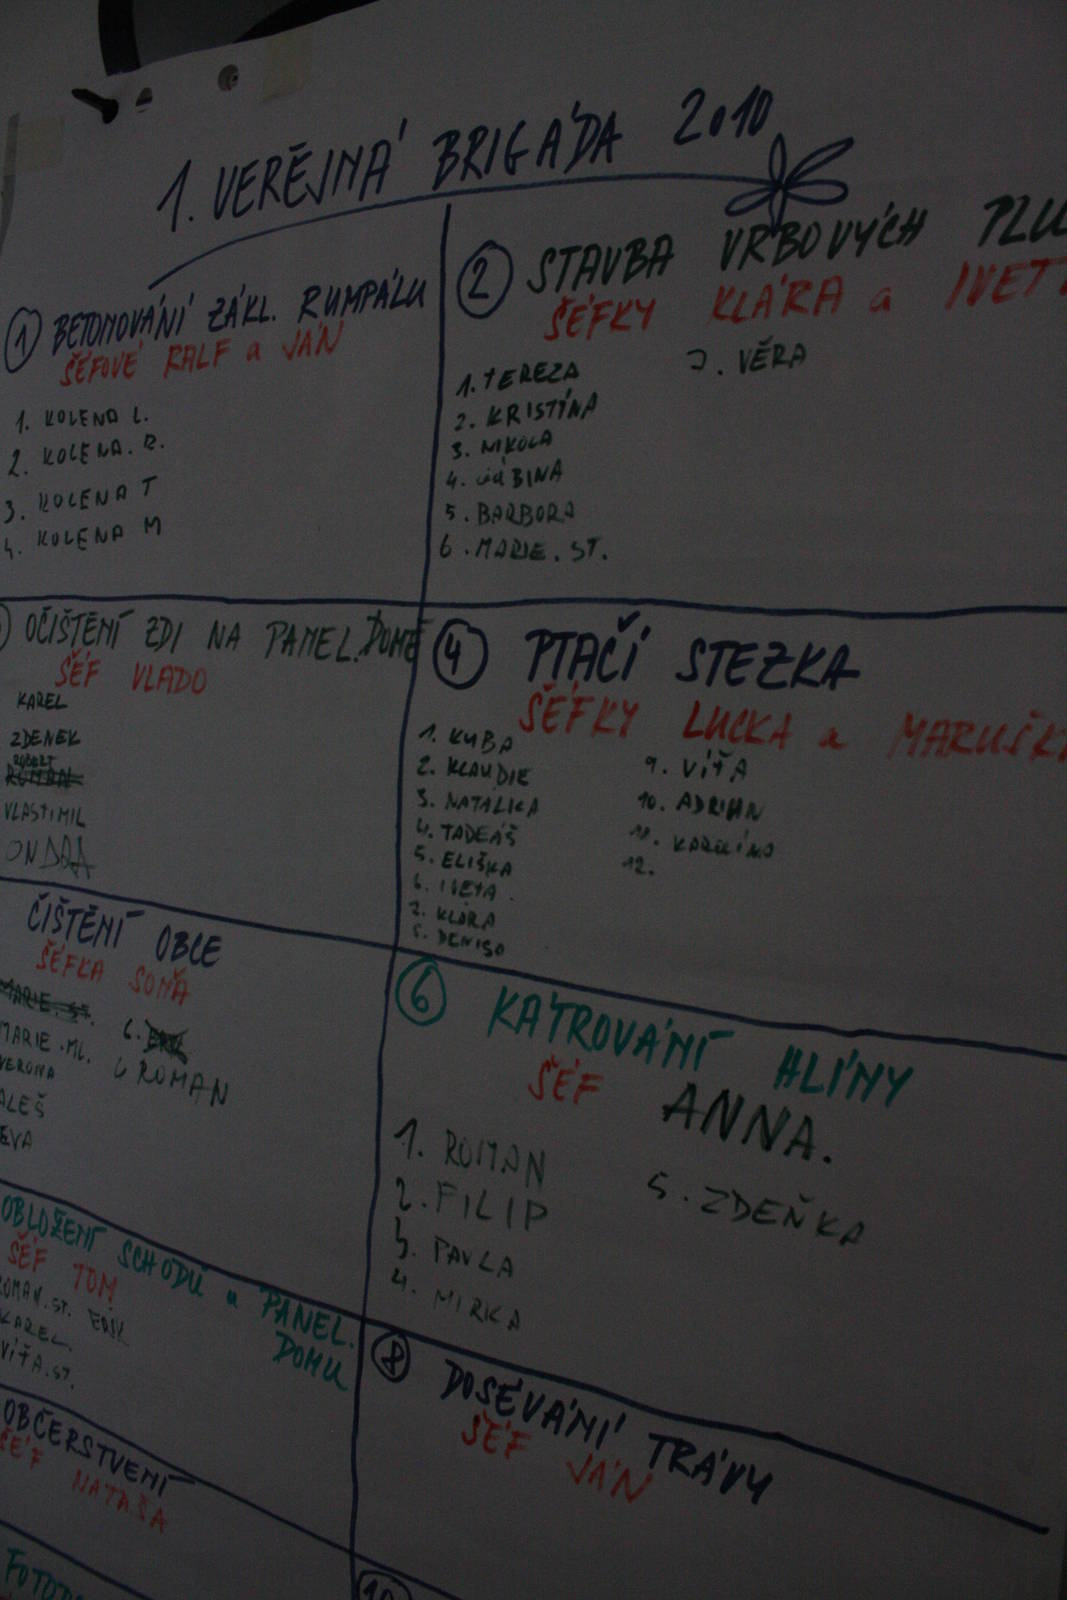 1. VEREJNÁ BRIGÁDA 2010
1 BETONOVÁNÍ ZÁKL. RUMPÁLU
ŠÉFOVÉ RALF a JÁN
1. KOLENA L.
2. KOLENA. R.
3. KOLENA T
4. KOLENA M
2 STAVBA VRBOVÝCH
ŠÉFKY KLÁRA a
1. TEREZA
2. KRISTÍNA
3. NIKOLA
4.
5. BARBORA
6. MARIE. ST.
7. VĚRA
OČIŠTĚNÍ ZDI NA PANEL. DOMĚ
ŠÉF VLADO
KAREL
ZDENEK
ROBERT
VLASTIMIL
ONDRA
4 PTAČÍ STEZKA
ŠÉFKY LUCKA a
1. KUBA
2. KLAUDIE
3. NATÁLKA
4. TADEÁŠ
5. ELIŠKA
6. IVETA
7. KLÁRA
8. DENISA
9. VÍŤA
10. ADRIAN
11. KAROLÍNA
12.
ČIŠTĚNÍ OBCE
ŠÉFKA SOŇA
MARIE. ST.
MARIE. ML.
VERONA
ALEŠ
EVA
6.
6 ROMAN
6 KÁTROVÁNÍ HLÍNY
ŠÉF ANNA.
1. ROMAN
2. FILIP
3. PAVLA
4. MIRKA
5. ZDEŇKA
OBLOŽENÍ SCHODŮ u PANEL.
DOMU
ŠÉF TOM
ROMAN. ST. ERIK
KAREL
VÍŤA. ST.
8 DOSÉVÁNÍ TRÁVY
ŠÉF JÁN
OBČERSTVENÍ
ŠÉF NATAŠA
10